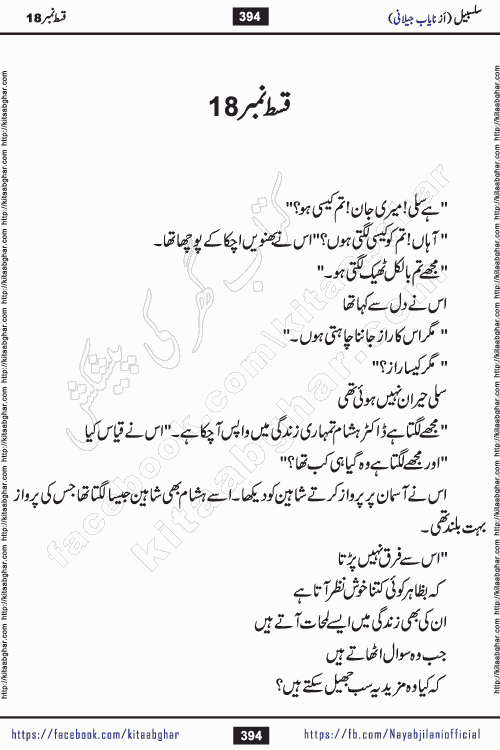 سلسبیل (از نایاب جیلانی) 394 قسط نمبر 18
قسط نمبر 18
"ہے سلی! میری جان! تم کیسی ہو؟"
"آہاں! تم کو کیسی لگتی ہوں؟" اس نے بھنویں اچکا کے پوچھا تھا۔
"مجھے تم بالکل ٹھیک لگتی ہو۔"
اس نے دل سے کہا تھا
"مگر اس کا راز جاننا چاہتی ہوں۔"
"مگر کیسا راز؟"
سلی حیران نہیں ہوئی تھی
"مجھے لگتا ہے ڈاکٹر ہشام تمہاری زندگی میں واپس آ چکا ہے۔" اس نے قیاس کیا
"اور مجھے لگتا ہے وہ گیا ہی کب تھا؟"
اس نے آسمان پر پرواز کرتے شاہین کو دیکھا۔ اسے ہشام بھی شاہین جیسا لگتا تھا جس کی پرواز
بہت بلند تھی۔
"اس سے فرق نہیں پڑتا
کہ بظاہر کوئی کتنا خوش نظر آتا ہے
ان کی بھی زندگی میں ایسے لمحات آتے ہیں
جب وہ سوال اٹھاتے ہیں
کہ کیا وہ مزید یہ سب جھیل سکتے ہیں؟
کتاب گھر کی پیشکش
facebook.com/kitaabghar
kitaabghar.com
http://kitaabghar.com
https://facebook.com/kitaabghar 394 https://fb.com/Nayabjilaniofficial